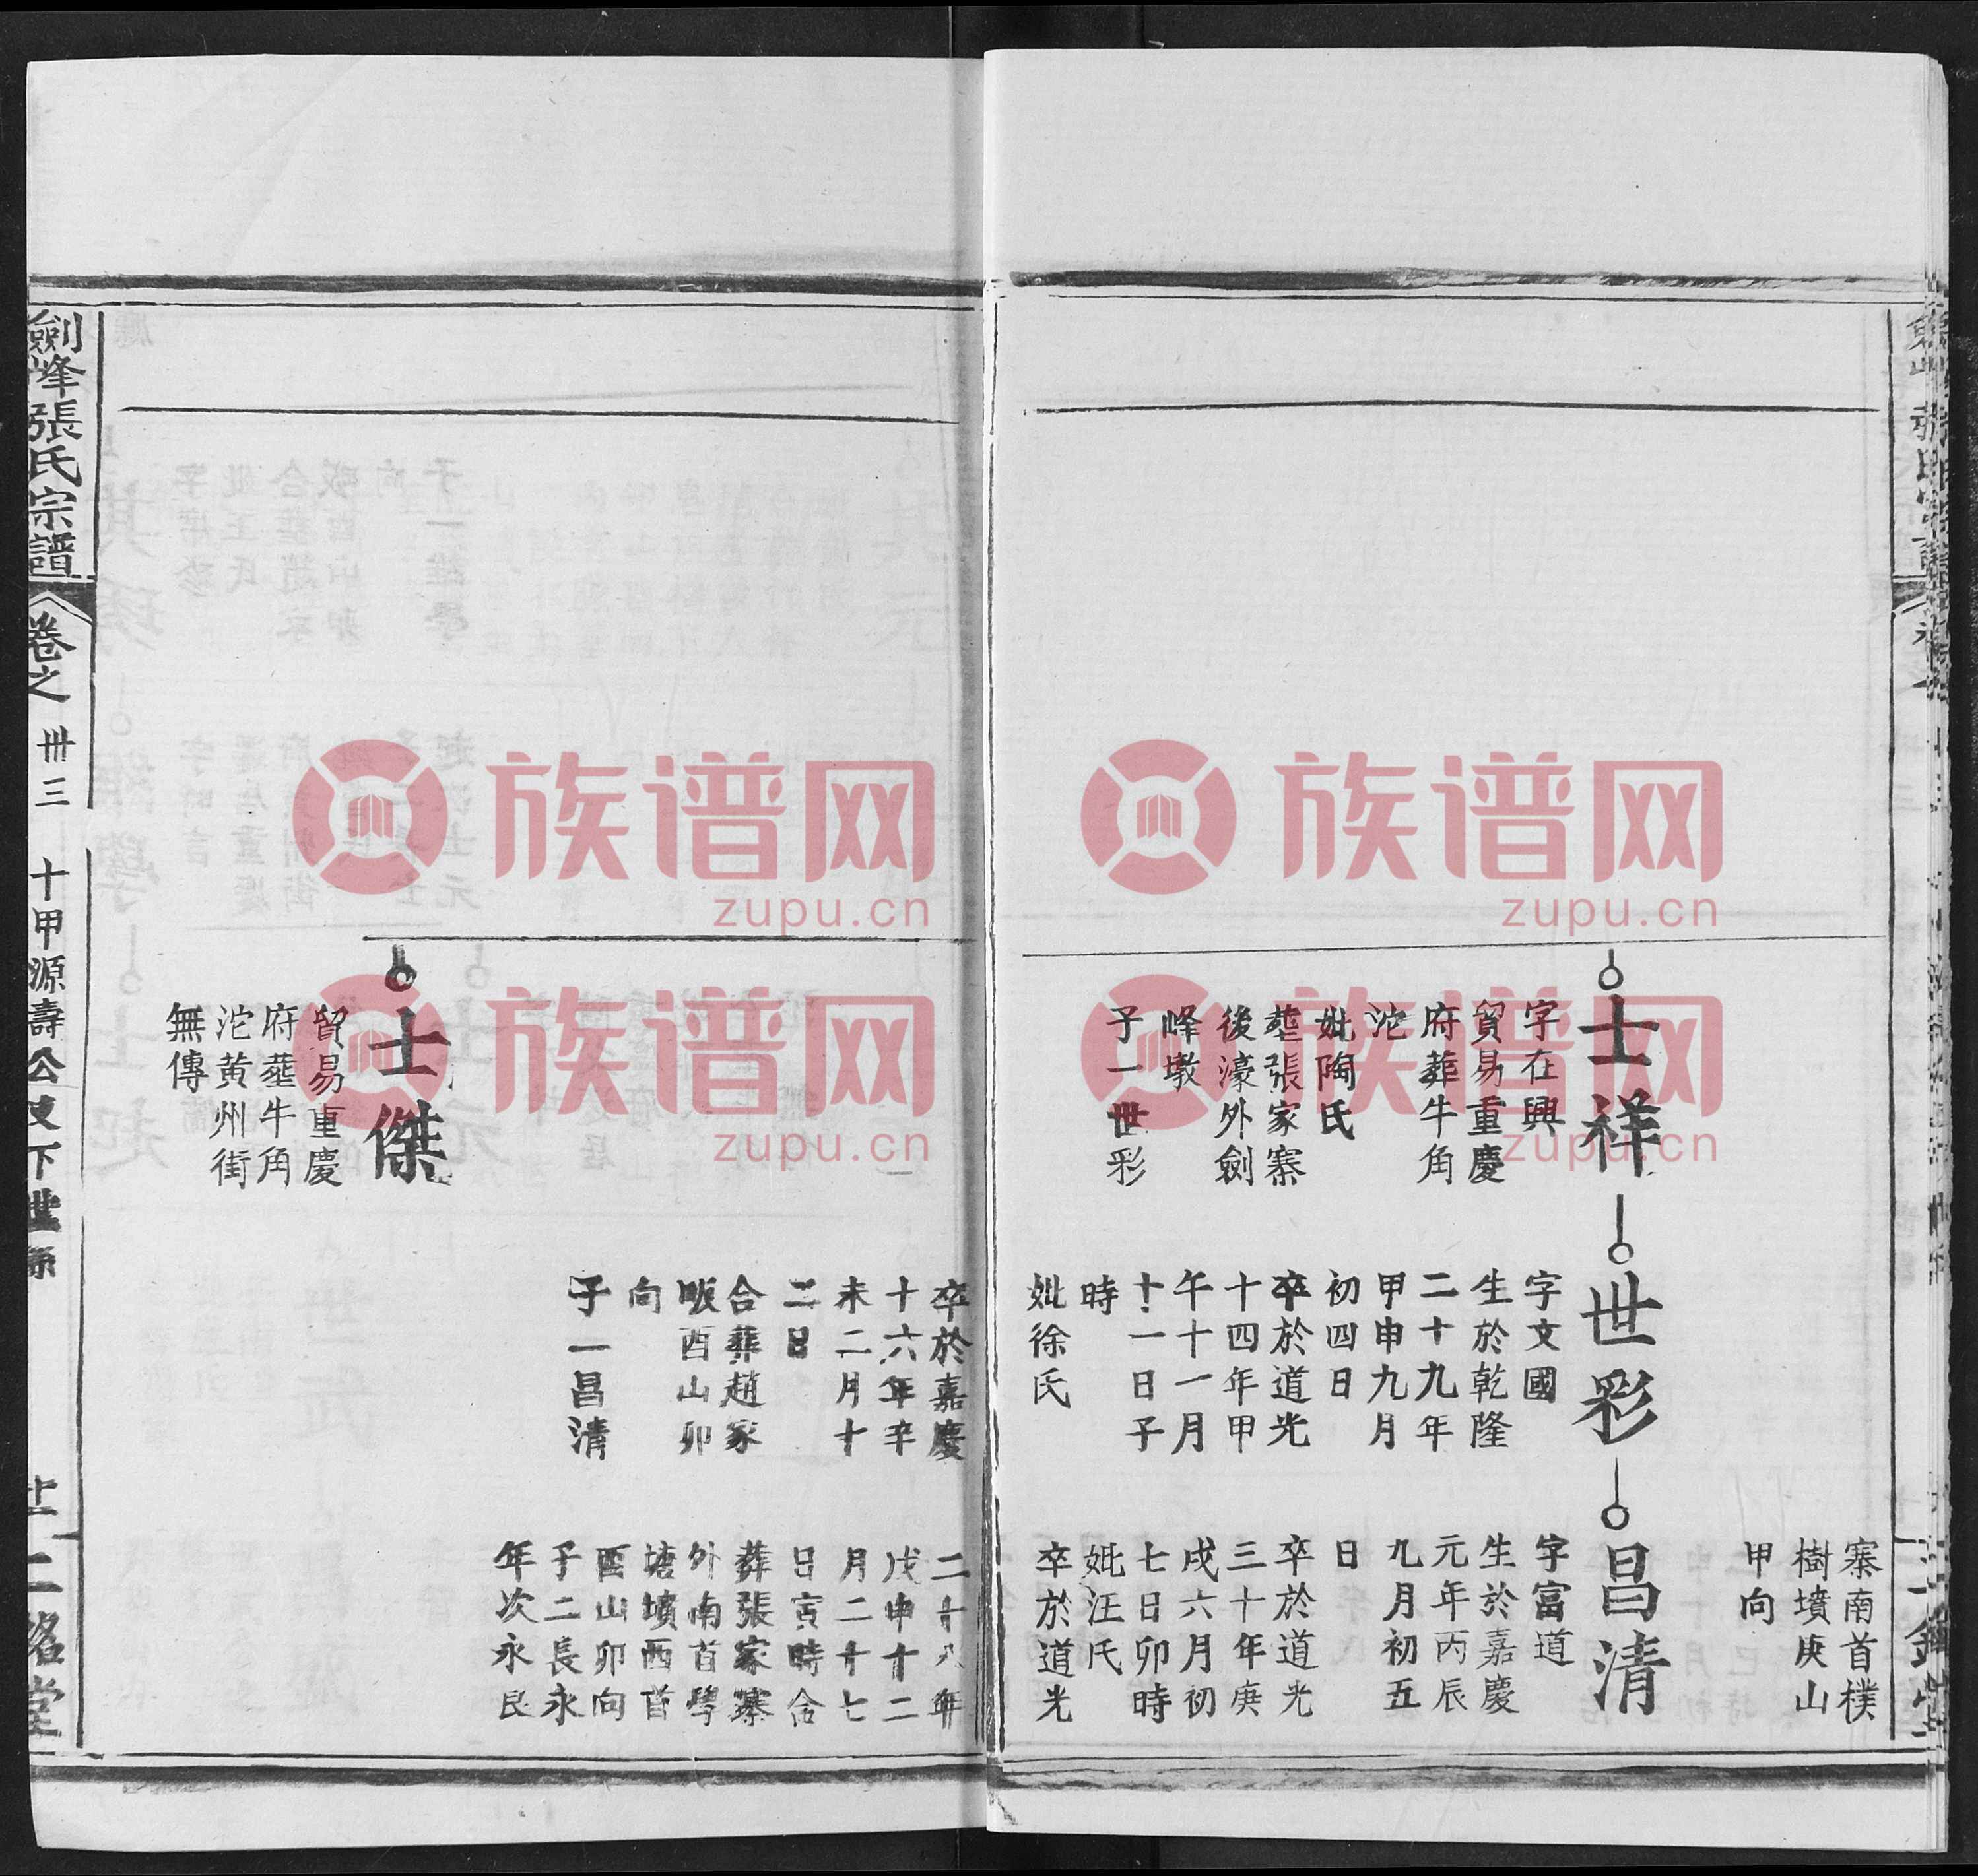 寨南首樸
樹墳庚山
甲向
士祥
字在興
貿易重慶
府葬牛角
沱
妣陶氏
塟張家寨
後濠外劍
峰墩
子一世彩
世彩
字文國
生於乾隆
二十九年
甲申九月
初四日
卒於道光
十四年甲
午十一月
十一日子
時
妣徐氏
卒於嘉慶
十六年辛
未二月十
二日
合葬趙家
畈酉山卯
向
子一昌清
昌清
字富道
生於嘉慶
元年丙辰
九月初五
日
卒於道光
三十年庚
戌六月初
七日卯時
妣汪氏
卒於道光
二十八年
戊申十二
月二十七
日寅時合
葬張家寨
外南首學
塘墳西首
酉山卯向
子二長永
年次永良
士傑
貿易重慶
府塟牛角
沱黄州街
無傳
劍峰張氏宗譜
卷之
卅三
十甲源壽公支下世系
二銘堂
族谱网
zupu.cn
族谱网
zupu.cn
族谱网
zupu.cn
族谱网
zupu.cn